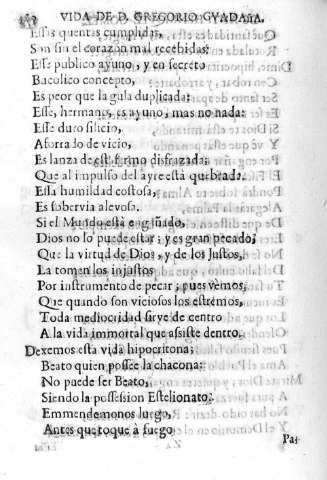 VIDA DE D. GREGORIO GVADAÑA.
Essas quentas cumplidas,
Son sin el corazón mal recebidas;
Esse publico ayuno, y en secreto
Bucolico concepto,
Es peor que la gula duplicada:
Esse, hermano, es ayuno, mas no nada:
Esse duro silicio,
Aforrado de vicio,
Es lanza de estafermo disfrazada;
Que al impulso del ayre está quebrada.
Essa humildad costosa,
Es sobervia alevosa.
Si el Mundo está engañado,
Dios no lo puede estar; y es gran pecado,
Que la virtud de Dios, y de los Justos,
La tomen los injustos
Por instrumento de pecar; pues vèmos,
Que quando son viciosos los estrémos,
Toda mediocridad sirve de centro
A la vida immortal que assiste dentro.
Dexemos esta vida hipocritona;
Beato quien possee la chacona:
No puede ser Beato,
Siendo la possession Estelionato:
Emmendemonos luego,
Antes que toque à fuego
Pai